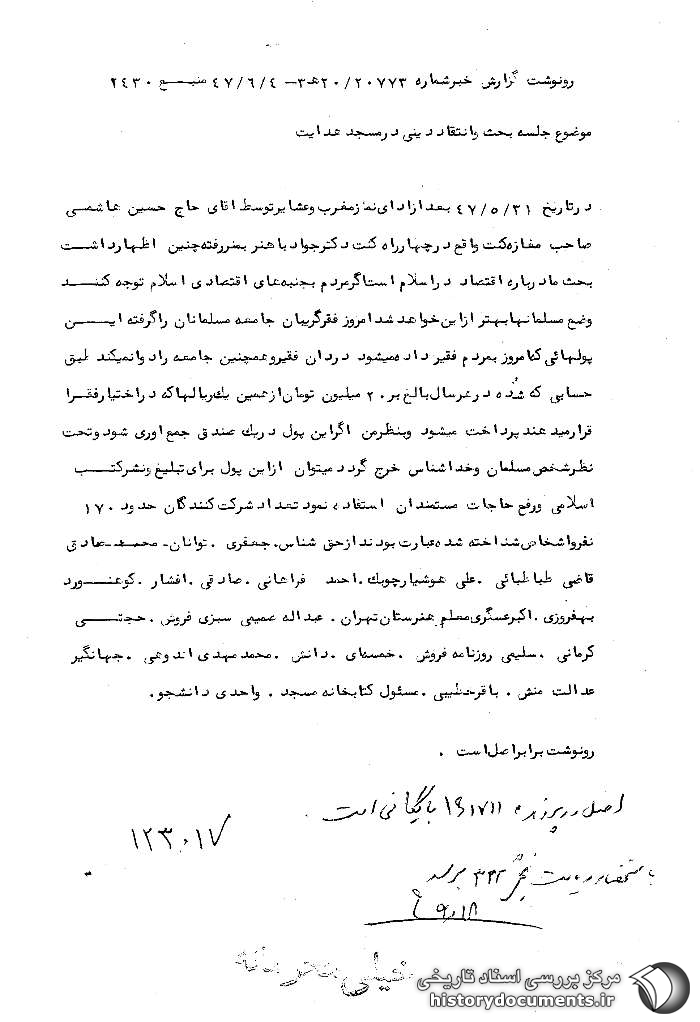 رونوشت گزارش خبرشماره ۲۰/۲۰۷۷۳هـ۳ – ۴۷/۶/۴ منبـــع ۲۴۳۰
موضوع جلسه بحث وانتقاد دینی درمسجد هدایت
درتاریخ ۴۷/۵/۳۱ بعدازادای نمازمغرب وعشا توسط اقای حاج حسین هاشمـی
صاحب مغازه کت واقع درچهارراه کنت دکترجواد باهنر بمنبر رفته چنین اظهارداشـت
بحث مادرباره اقتصاد دراسلام است اگرمردم بجنبه های اقتصادی اسلام توجه کننـــد
وضع مسلمانها بهتر ازاین خواهد شد امروز فقرگریبان جامعه مسلمانان راگرفته ایـــن
پولهائی که امروز بمردم فقیر داده میشود دردان فقیروهمچنین جامعه را دوا نمیکند طبق
حسابی که شُده درهرسال بالغ بر ۲۰ میلیون تومان ازهمین یک ریالها که دراختیارفقـرا
قرارمیدهند پرداخت میشود وبنظرمن اگراین پول دریک صندوق جمع اوری شود وتحت
نظرشخص مسلمان وخداشناس خرج گردد میتوان ازاین پول برای تبلیغ ونشرکتـــب
اسلامی ورفع حاجات مستمندان استفاده نمود تعداد شرکت کنندگان حدود ۱۷۰
نفرواشخاص شناخته شده عبارت بودند ازحق شناس. جعفری . توانان- محمـد صادق
قاضی طباطبائی . علی هوشیارچوبک . احمد فراهانی . صادقی . افشار .
بهفروزی . اکبرعسگری معلم هنرستان تهران . عبداله صمیمی سبزی فروش . حجتـــی
کرمانی . سلیمی روزنامه فروش . خمسه‌ای . دانش . محمدمهدی اندوهی . جهانگیر
عدالت منش . باقرخطیبی . مسئول کتابخانه مسجد . واحدی دانشجو .
رونوشت برابراصل است .
اصل در پرونده ۱۶۱۷۱۱ بایگانی است
۱۲۳۰۱۷
۳۲۲
۹/۱۸
خیلی محرمانه
مرکز بررسی اسناد تاریخی
historydocuments.ir